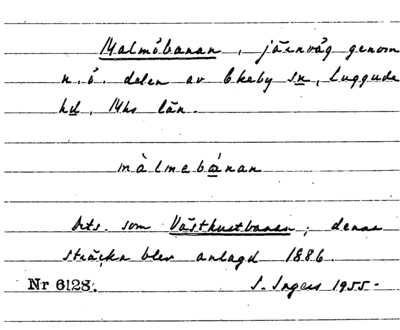 Malmöbanan, järnväg genom
n.ö. delen av Ekeby sn, Luggude
hd, Mhs län.
màlmebánan
Dets. som Västkustbanan; denna
sträcka blev anlagd 1886.
Nr 6128. S. Ingers 1955-